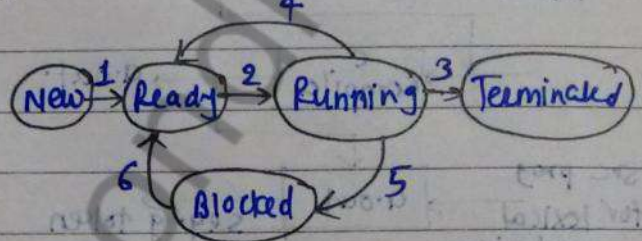 4
New 1 Ready 2 Running 3 Terminated
6 Blocked 5